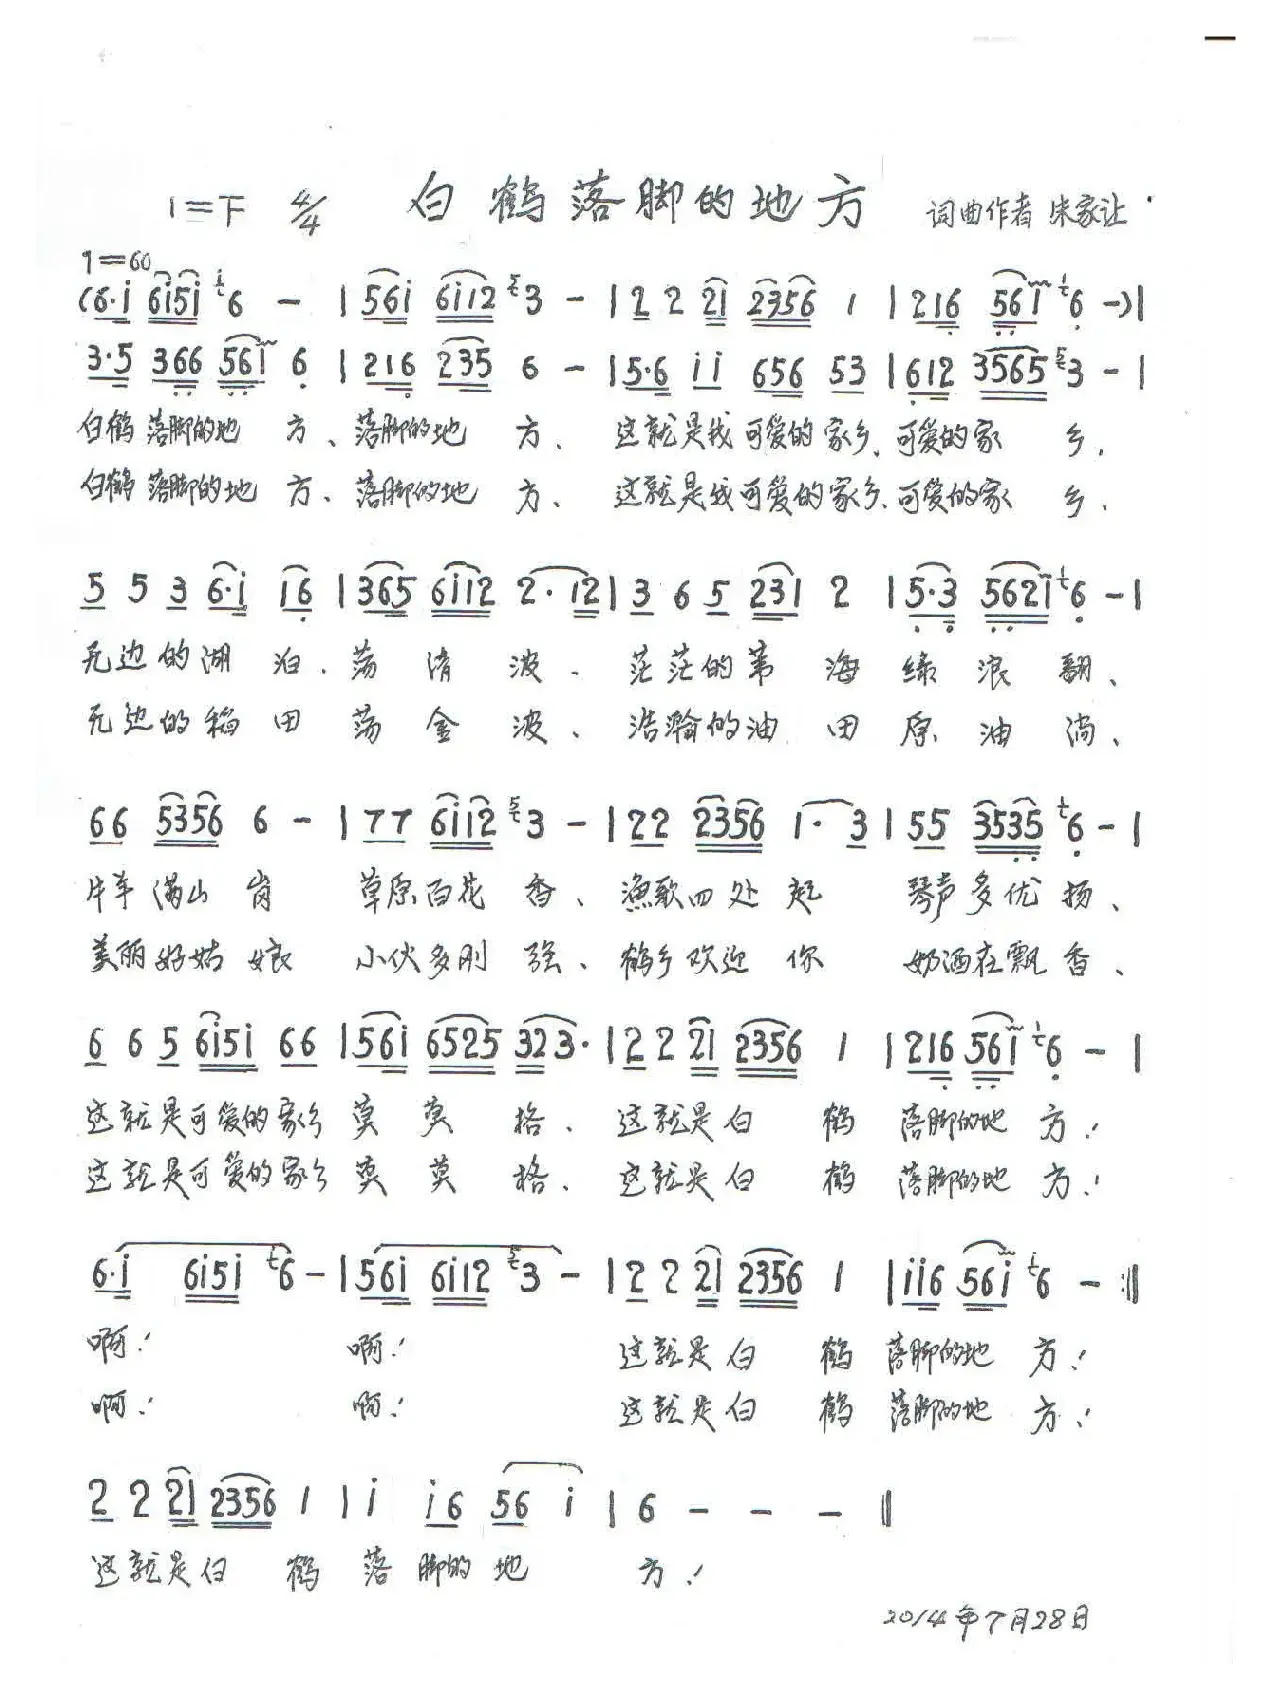 1=F 4/4 白鹤落脚的地方 词曲作者 朱家让
1=60
(6·i 6i5i 6 - | 56i 6i12 3 - | 2 2 21 2356 1 | 216 561 6 -)|
3·5 366 561 6 | 216 235 6 - | 5·6 ii 656 53 | 612 3565 3 - |
白鹤落脚的地 方、落脚的地 方、 这就是我可爱的家乡、可爱的家 乡.
白鹤落脚的地 方、落脚的地 方、 这就是我可爱的家乡、可爱的家 乡.
5 5 3 6·i 16 | 365 6i12 2·12 | 3 6 5 231 2 | 5·3 5621 6 - |
无边的湖 泊. 荡 清 波、 茫茫的苇 海 绿 浪 翻、
无边的稻 田 荡 金 波、 浩瀚的油 田 原 油 淌、
66 5356 6 - | 77 6i12 3 - | 22 2356 1·3 | 55 3535 6 - |
牛羊满山 岗 草原百花 香、渔歌四处 起 琴声多优 扬、
美丽好姑 娘 小伙多刚 强、鹤乡欢迎 你 奶酒在飘 香、
6 6 5 6i5i 66 | 56i 6525 323· | 2 2 21 2356 1 | 216 561 6 - |
这就是可爱的家乡 莫 莫 格、 这就是白 鹤 落脚的地 方!
这就是可爱的家乡 莫 莫 格、 这就是白 鹤 落脚的地 方!
6·i 6i5i 6 - | 56i 6i12 3 - | 2 2 21 2356 1 | ii6 56i 6 - :||
啊! 啊! 这就是白 鹤 落脚的地 方!
啊! 啊! 这就是白 鹤 落脚的地 方!
2 2 21 2356 1 | i i6 56 i | 6 - - - ||
这就是白 鹤 落 脚的 地 方!
2014年7月28日